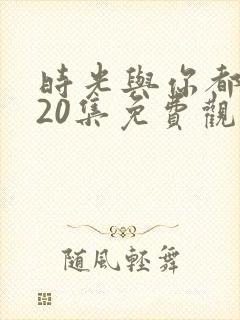 時光與你都
20集免費觀
隨風輕舞